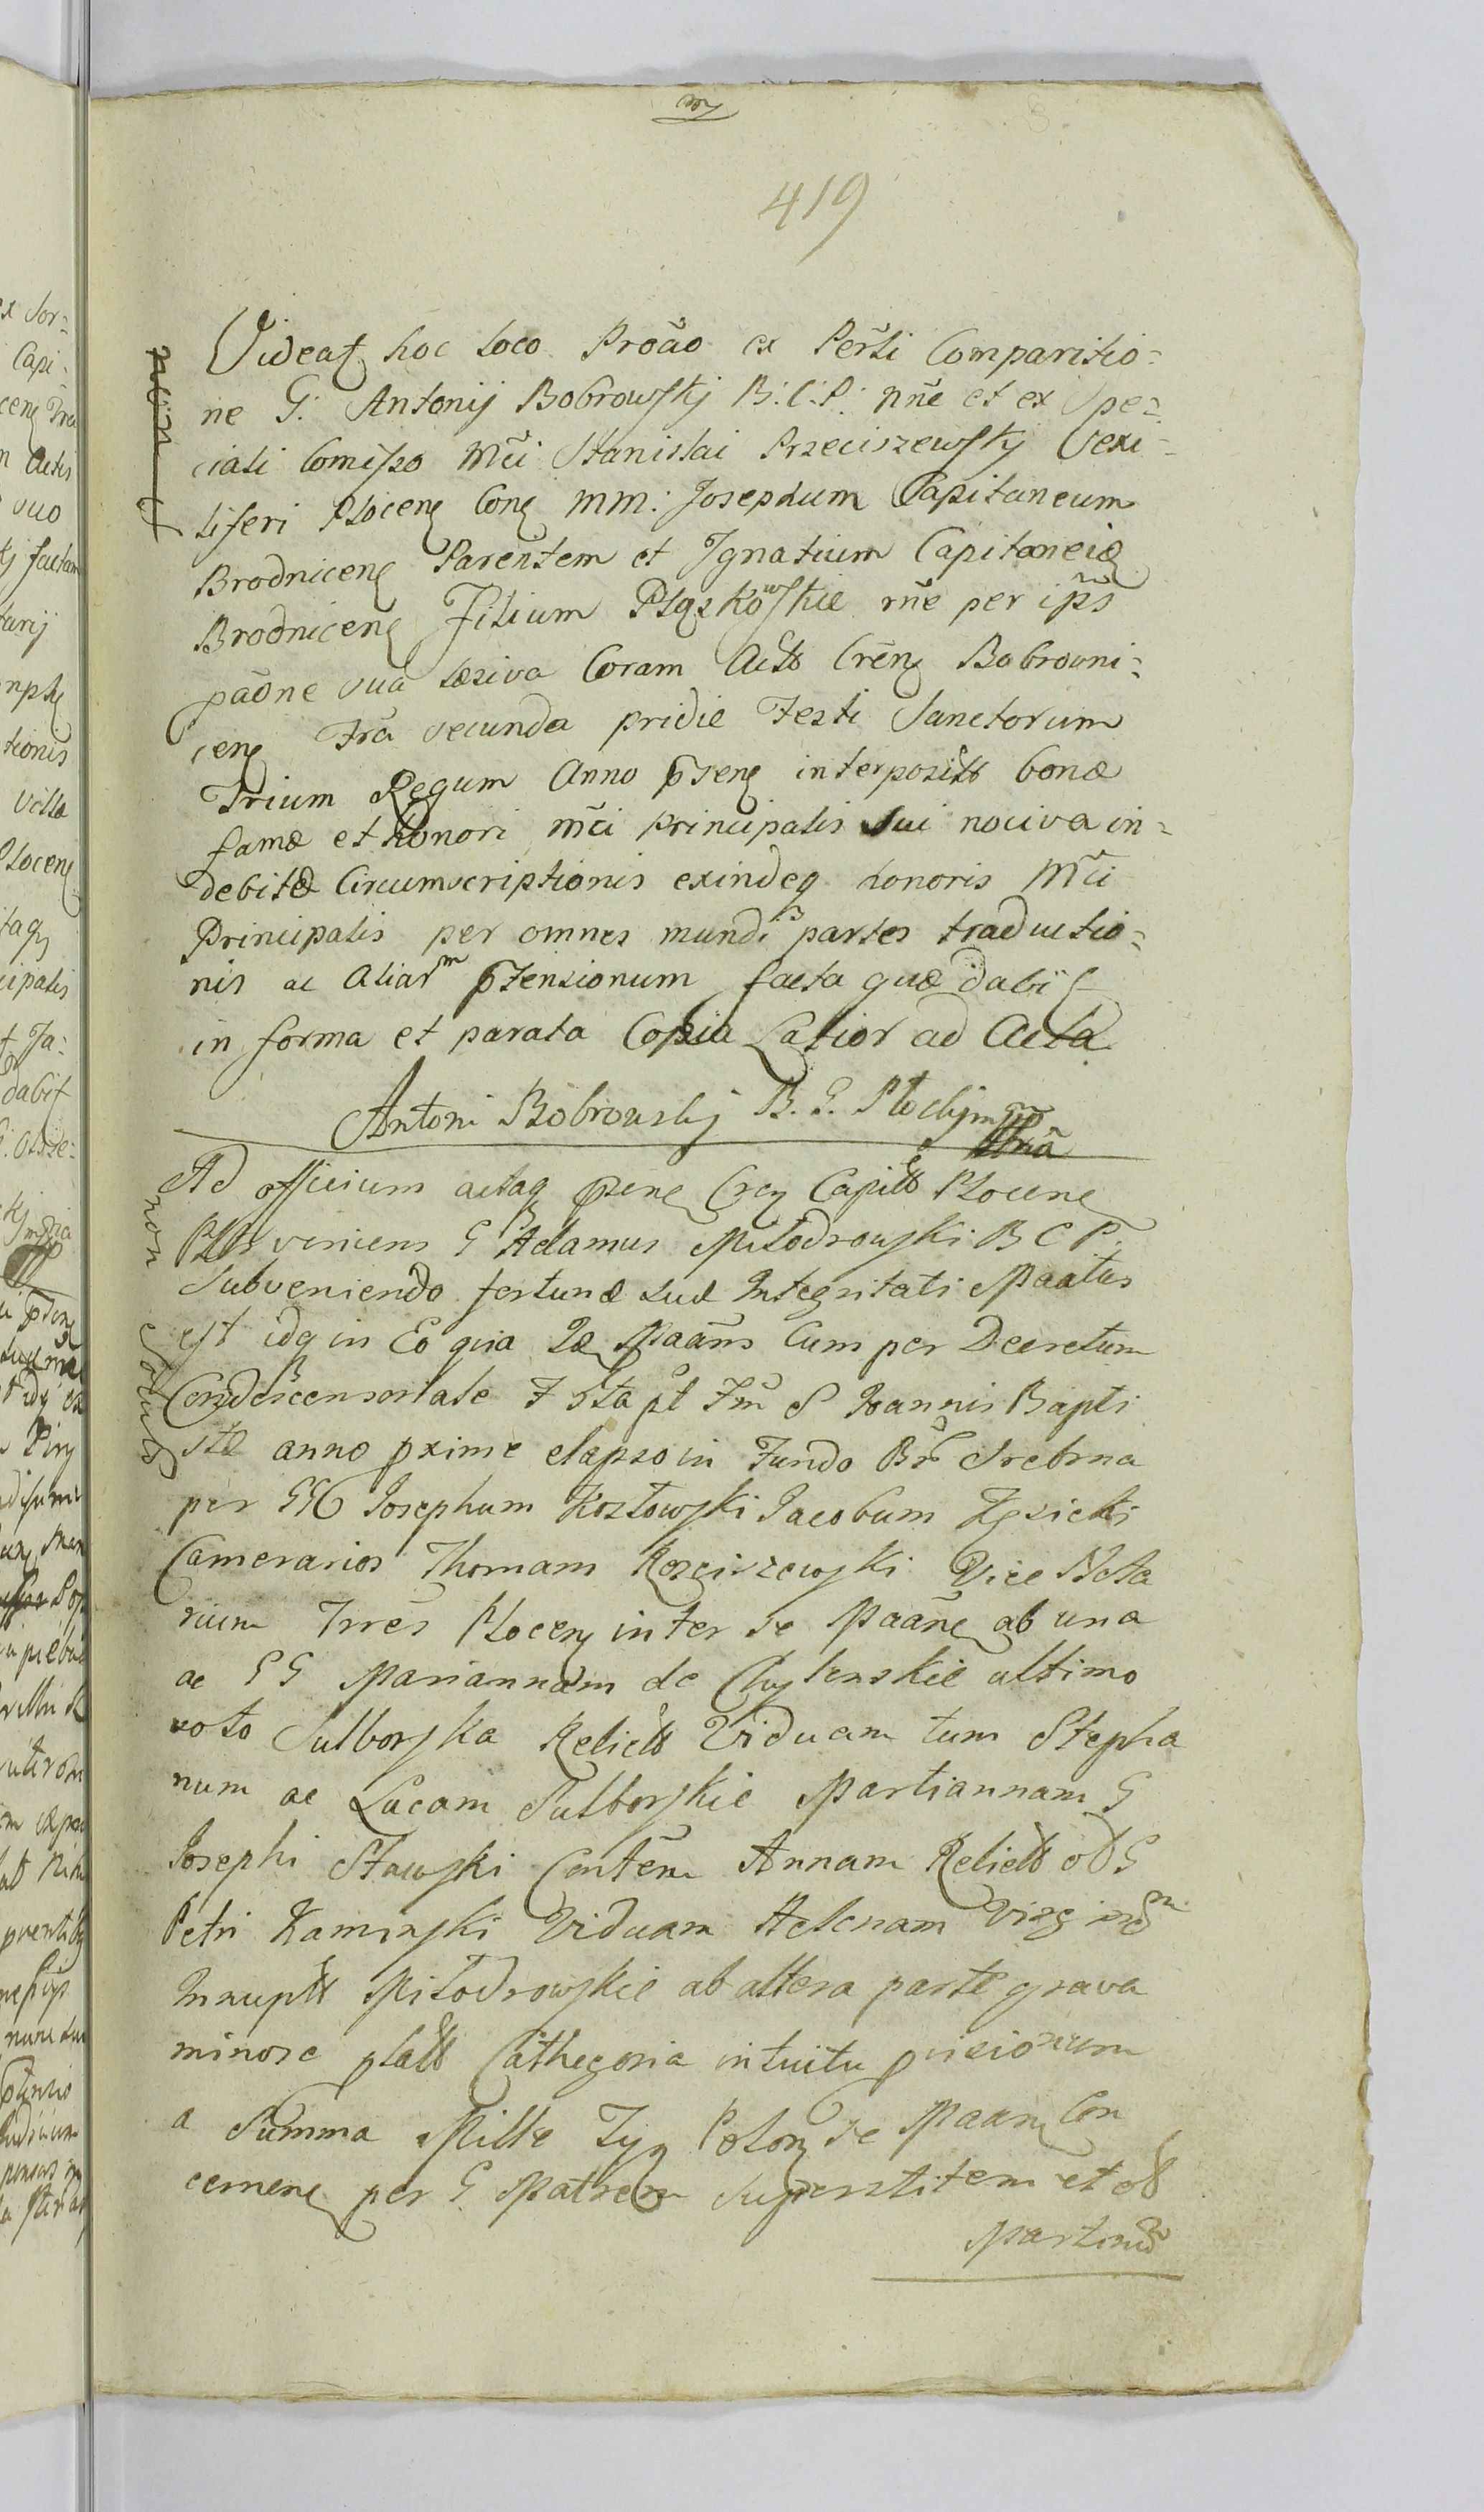 419
Videat hoc loco Prõão ex Pẽrli Comparitio=
ne G: Antonij Bobrowskij B:C:P: nñe et ex Spe=
ciali Comisso Mc̃i Stanislai Przeciszewskÿ Vexi=
liferi Plocen Con MM: Josephum Capitaneum
Brodnicen Parentem et Ignatium Capitaneid
Brodnicen Filium Pląskowskie rñe per ip̃s
pãdne sua lesiva Coram Actis Crẽn Bobrowni=
cen Frã secunda pridie Festi Sanctorum
Trium Regum Anno p̃sen interpositt bonæ
famæ et honori Mc̃i principalis sui nociva in=
debitæ Circumscriptionis exindeq honoris Mc̃i
Principalis per omnes mundi partes traductio=
nis ac Aliar p̃tensionum facta quæ dabit
in forma et parata Copia Latior ad Acta
Antoni Bobrowskj B. G. Plockj
Ad officium actaq p̃sen Cren Capitt Plocen
Plr veniens G Adamus Miłodrowski B C P.
Subveniendo fortunæ suæ Integritati Maatus
est idq in Eo quia Se Maãns Cum per Decretum
Condescensoriale F sta pt Fm̃ S Joannis Bapti
stæ anno pxime elapso in Fundo Br̃ Srebrna
per GG Josephum Kozłowski Jacobum Zęsicki
Camerarios Thomam Rosciszewski Vice Nota
rium Trrẽs Plocen inter se Maãn ab una
ac GG Mariannam de Chylenskie ultimo
voto Sulborska Relictt Viduam tum Stepha
num ac Lucam Sulborskie Martiannam G
Josephi Stawski Contẽm Annam Relictt od G
Petri Kaminski Viduam Helenam Virginẽ
Innuptt Miłodrowskie ab altera parte grava
minose platt Cathegoria intuitu pvisionum
a Summa Mille Typ Polon se Maan Con
cernen per G Matrem superstitem et od